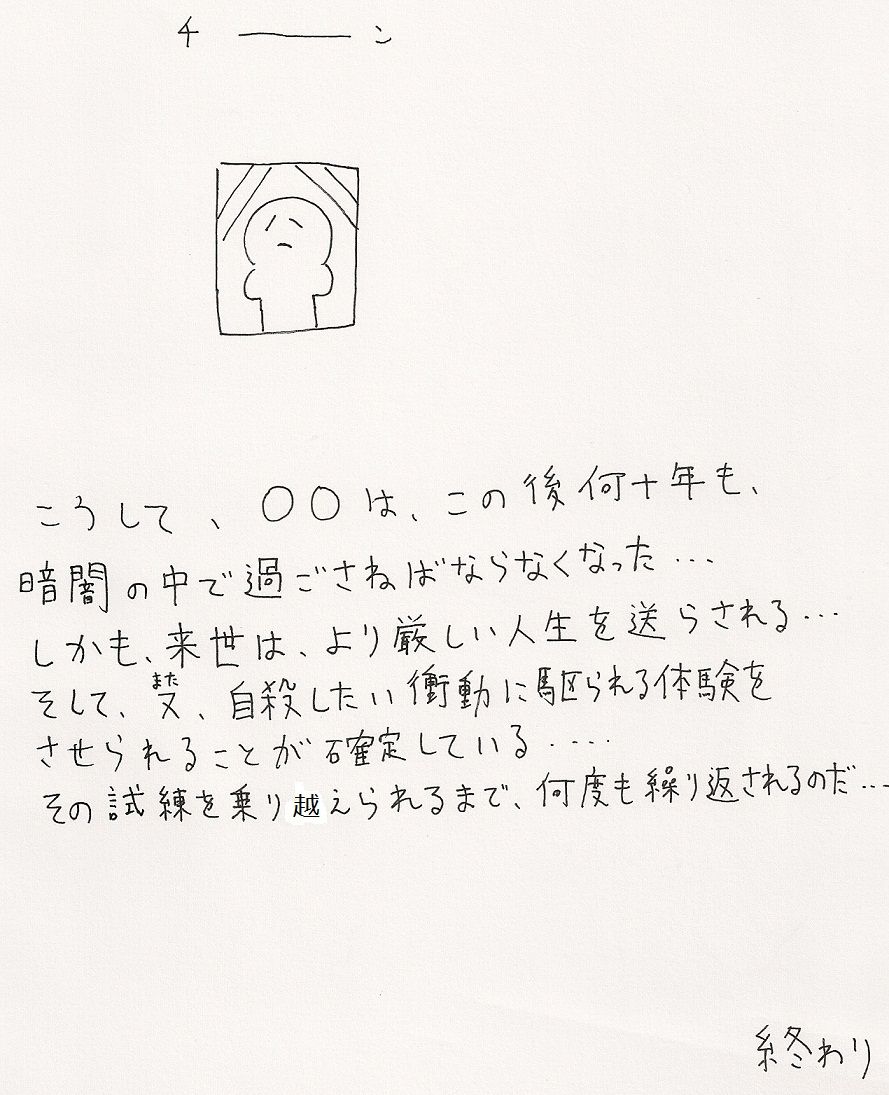 チ――ン
こうして、〇〇は、この後何十年も、
暗闇の中で過ごさねばならなくなった…
しかも、来世は、より厳しい人生を送らされる…
そして、又、自殺したい衝動に駆られる体験を
また
させられることが確定している‥‥
その試練を乗り越えられるまで、何度も繰り返されるのだ…
終わり